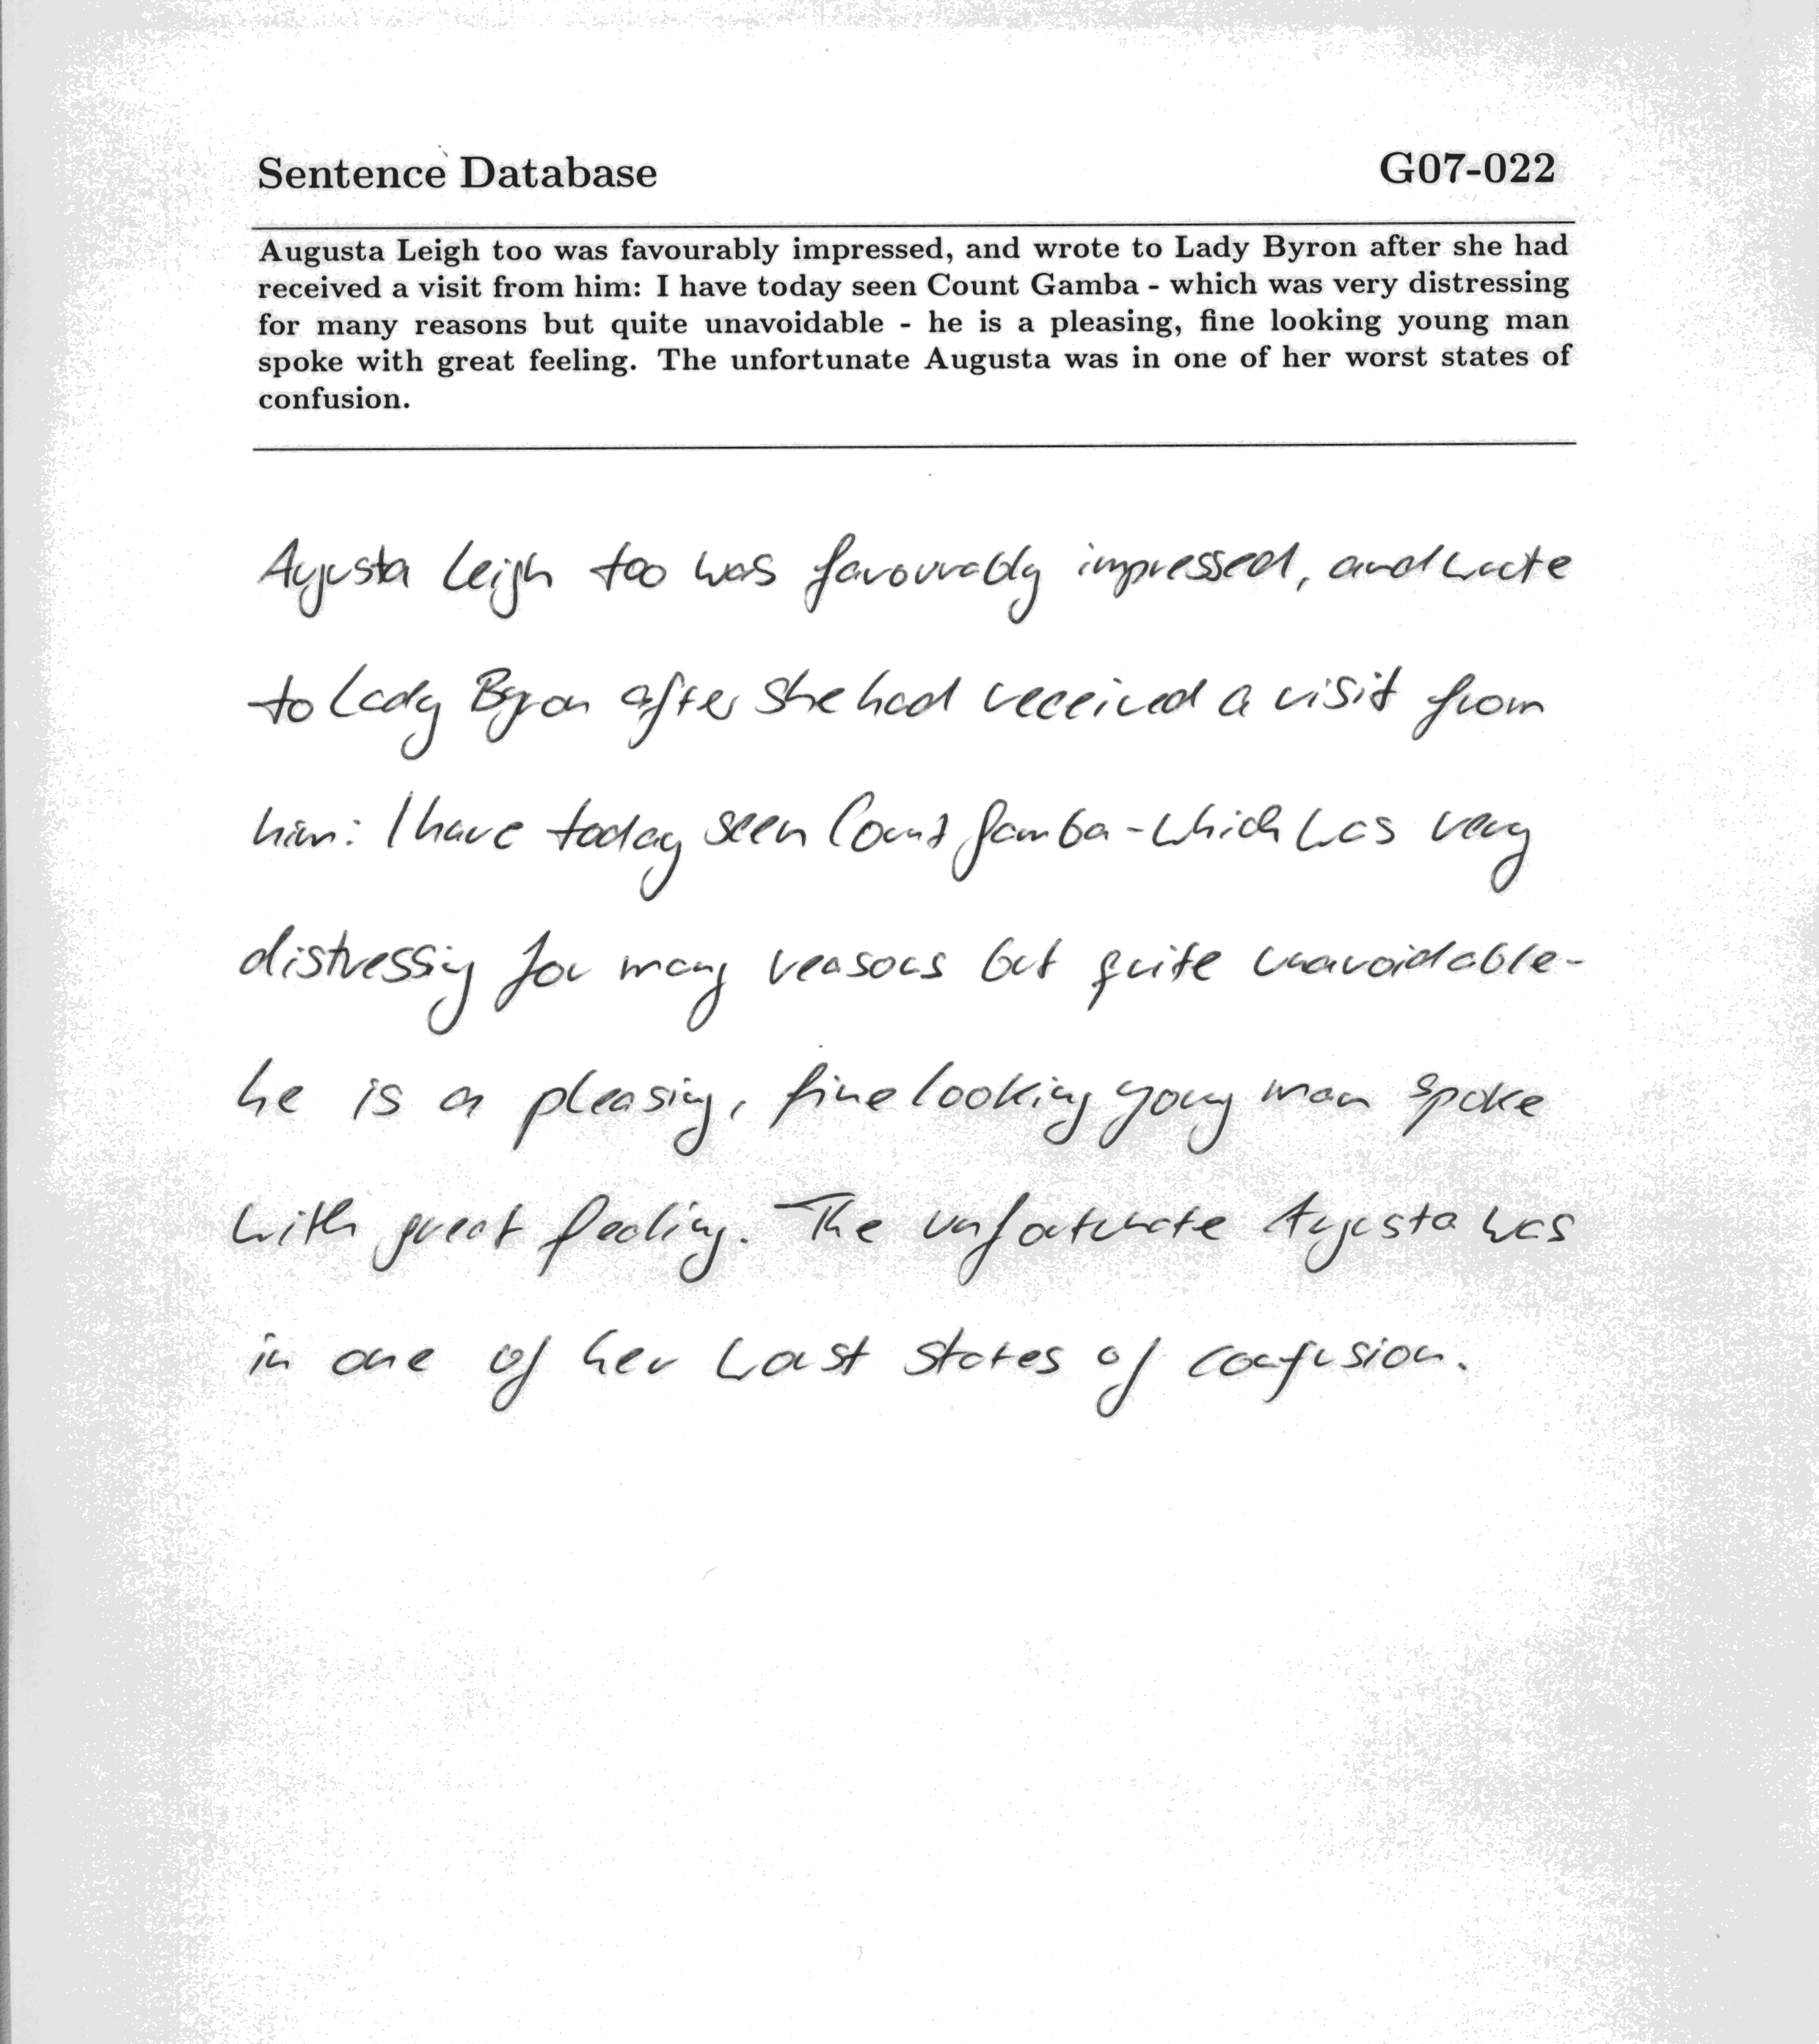 Sentence Database G07-022
Augusta Leigh too was favourably impressed, and wrote to Lady Byron after she had
received a visit from him: I have today seen Count Gamba - which was very distressing
for many reasons but quite unavoidable - he is a pleasing, fine looking young man
spoke with great feeling. The unfortunate Augusta was in one of her worst states of
confusion.
Augusta Leigh too was favourably impressed, and wrote
to Lady Byron after she had received a visit from
him: I have today seen Count Gamba - which was very
distressing for many reasons but quite unavoidable -
he is a pleasing, fine looking young man spoke
with great feeling. The unfortunate Augusta was
in one of her worst states of confusion.